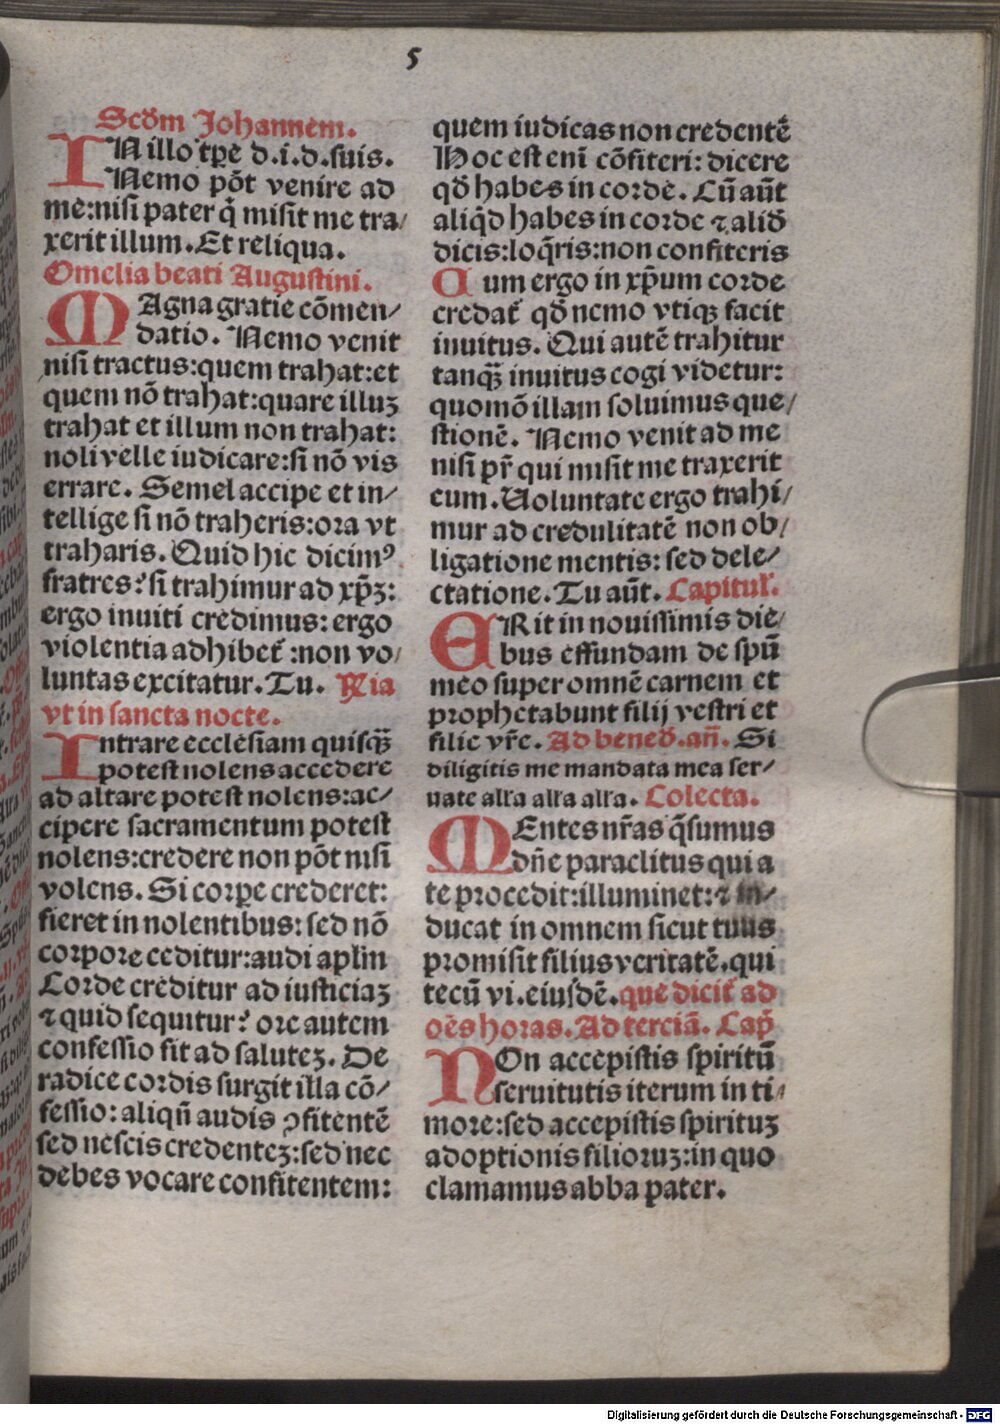 5
Scḋm Johannem.
IN illo tꝑe d.i.d.suis.
Nemo põt venire ad
me:nisi pater q̃ misit me tra/
xerit illum.Et reliqua.
Omelia beati Augustini.
MAgna gratie cõmen/
datio. Nemo venit
nisi tractus:quem trahat:et
quem nõ trahat:quare illuʒ
trahat et illum non trahat:
noli velle iudicare:si nõ vis
errare. Semel accipe et in/
tellige si nõ traheris:ora vt
traharis. Quid hic dicimꝰ
fratres? si trahimur ad xp̃ʒ:
ergo inuiti credimus: ergo
violentia adhibet᷑ :non vo/
luntas excitatur. Tu. R̃ia
vt in sancta nocte.
Intrare ecclesiam quisqʒ̃
potest nolens accedere
ad altare potest nolens:ac/
cipere sacramentum potest
nolens:credere non põt nisi
volens. Si corꝑe crederet:
fieret in nolentibus: sed nõ
corpore ceditur:audi ap̃lm
Corde creditur ad iusticiaʒ
⁊ quid sequitur? ore autem
confessio fit ad saluteʒ. De
radice cordis surgit illa cõ/
fessio: aliqñ audis ꝯfitentẽ
sed nescis credenteʒ:sed nec
debes vocare confitentem:
quem iudicas non credentẽ
Hoc est eni cõfiteri: dicere
qḋ habes in corde. Cũ aũt
aliq̃d habes in corde ⁊ aliḋ
dicis:loq̃ris:non confiteris
Cum ergo in xp̃um corde
credat᷑ qḋ nemo vtiqʒ facit
inuitus. Qui autẽ trahitur
tanqʒ̃ inuitus cogi videtur:
quomõ illam soluimus que/
stionẽ. Nemo venit ad me
nisi pr̃ qui misit me traxerit
eum.Uoluntate ergo trahi/
mur ad credulitatẽ non ob/
ligatione mentis: sed dele/
ctatione. Tu aũt. Capitul᷑.
ERit in nouissimis die/
bus effundam de spũ
meo super omnẽ carnem et
prophetabunt filij vestri et
filie vr̃e. Ad beneḋ.añ. Si
diligitis me mandata mea ser/
uate all'a all'a all'a. Colecta.
MEntes nr̃as q̃sumus
dñe paraclitus qui a
te procedit:illuminet:⁊ in/
ducat in omnem sicut tuus
promisit filius veritatẽ.qui
tecũ vi.eiusdẽ.que dicit᷑ ad
oẽs horas. Ad terciã. Cap̃
NOn accepistis spiritũ
seruitutis iterum in ti/
more:sed accepistis spirituʒ
adoptionis filioruʒ:in quo
clamamus abba pater.
Digitalisierung gefördert durch die Deutsche Forschungsgemeinschaft - DFG